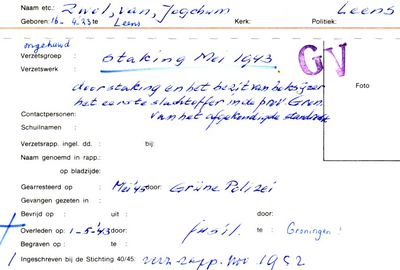 Naam etc.: Zwel, van, Jogchum Leens
Geboren: 16- 4.'23 te Leens Kerk: Politiek:
ongehuwd
Verzetsgroep : Staking Mei 1943 GV
Verzetswerk :
door staking en het bezit van
het eerste slachtoffer in de prov. Gron. Foto
Contactpersonen: van het afgekondigde standrecht
Schuilnamen :
Verzetsrapp. ingel. dd. : bij:
Naam genoemd in rapp.:
op bladzijde:
Gearresteerd op : Mei '43 door: Grüne Polizei
Gevangen gezeten in :
Bevrijd op : uit : door:
Overleden op : 1-5-'43 door : fusil. te : Groningen!
Begraven op : te :
Ingeschreven bij de Stichting 40/45: rapp. nov 1952